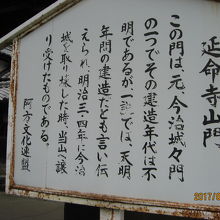 延命寺山門
この門は元、今治城々門
の一つでその建造年代は不
明であるが一説では、天明
年間の建造だとも言い伝
えられ、明治三・四年に今治
城を取り壊した時、当山へ譲
り受けたものである。
阿方文化連盟
2017/0